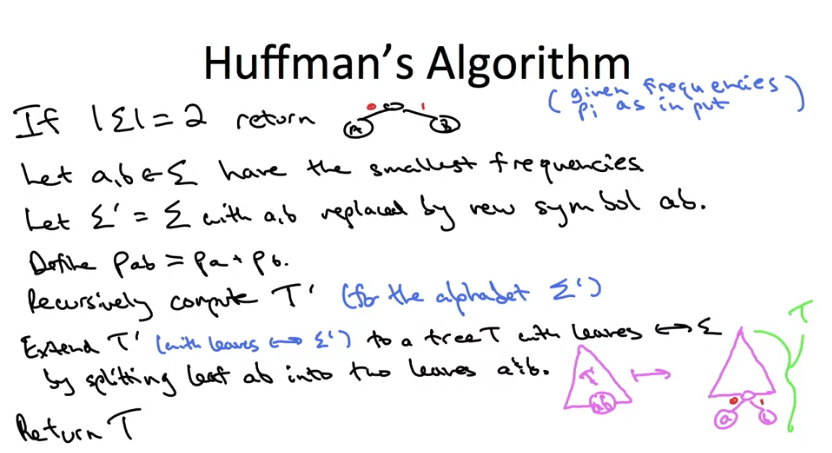 Huffman's Algorithm
(given frequencies
pi as input)
If |Σ| = 2 return
0 1
A B
Let a,b ∈ Σ have the smallest frequencies
Let Σ' = Σ with a,b replaced by new symbol ab.
Define pab = pa + pb.
Recursively compute T' (for the alphabet Σ')
Extend T' (with leaves ↔ Σ') to a tree T with leaves ↔ Σ
by splitting leaf ab into two leaves a & b.
T' ab ↦ 0 1 a b T
Return T